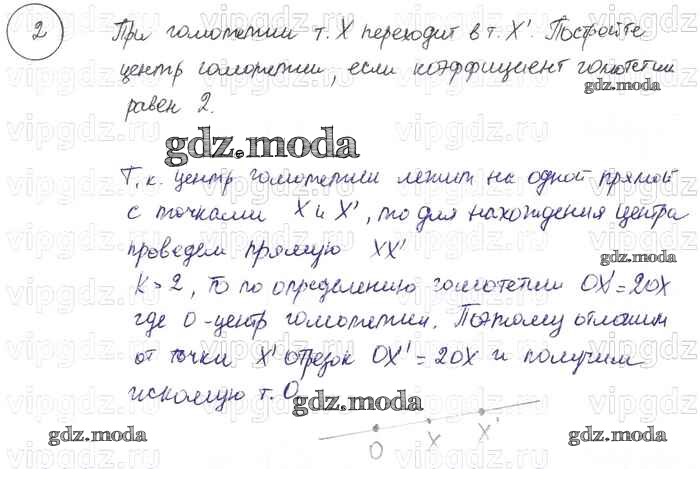 2
При гомотетии т. X переходит в т. X'. Постройте
центр гомотетии, если коэффициент гомотетии
равен 2.
gdz.moda
gdz.moda
Т.к. центр гомотетии лежит на одной прямой
с точками X и X', то для нахождения центра
проведем прямую XX'
gdz.moda
K=2, то по определению гомотетии OX'=2OX
где O-центр гомотетии. Поэтому отложим
от точки X' отрезок OX'=2OX и получим
искомую т. O
gdz.moda
gdz.moda
gdz.moda
O X X'
vipgdz.ru